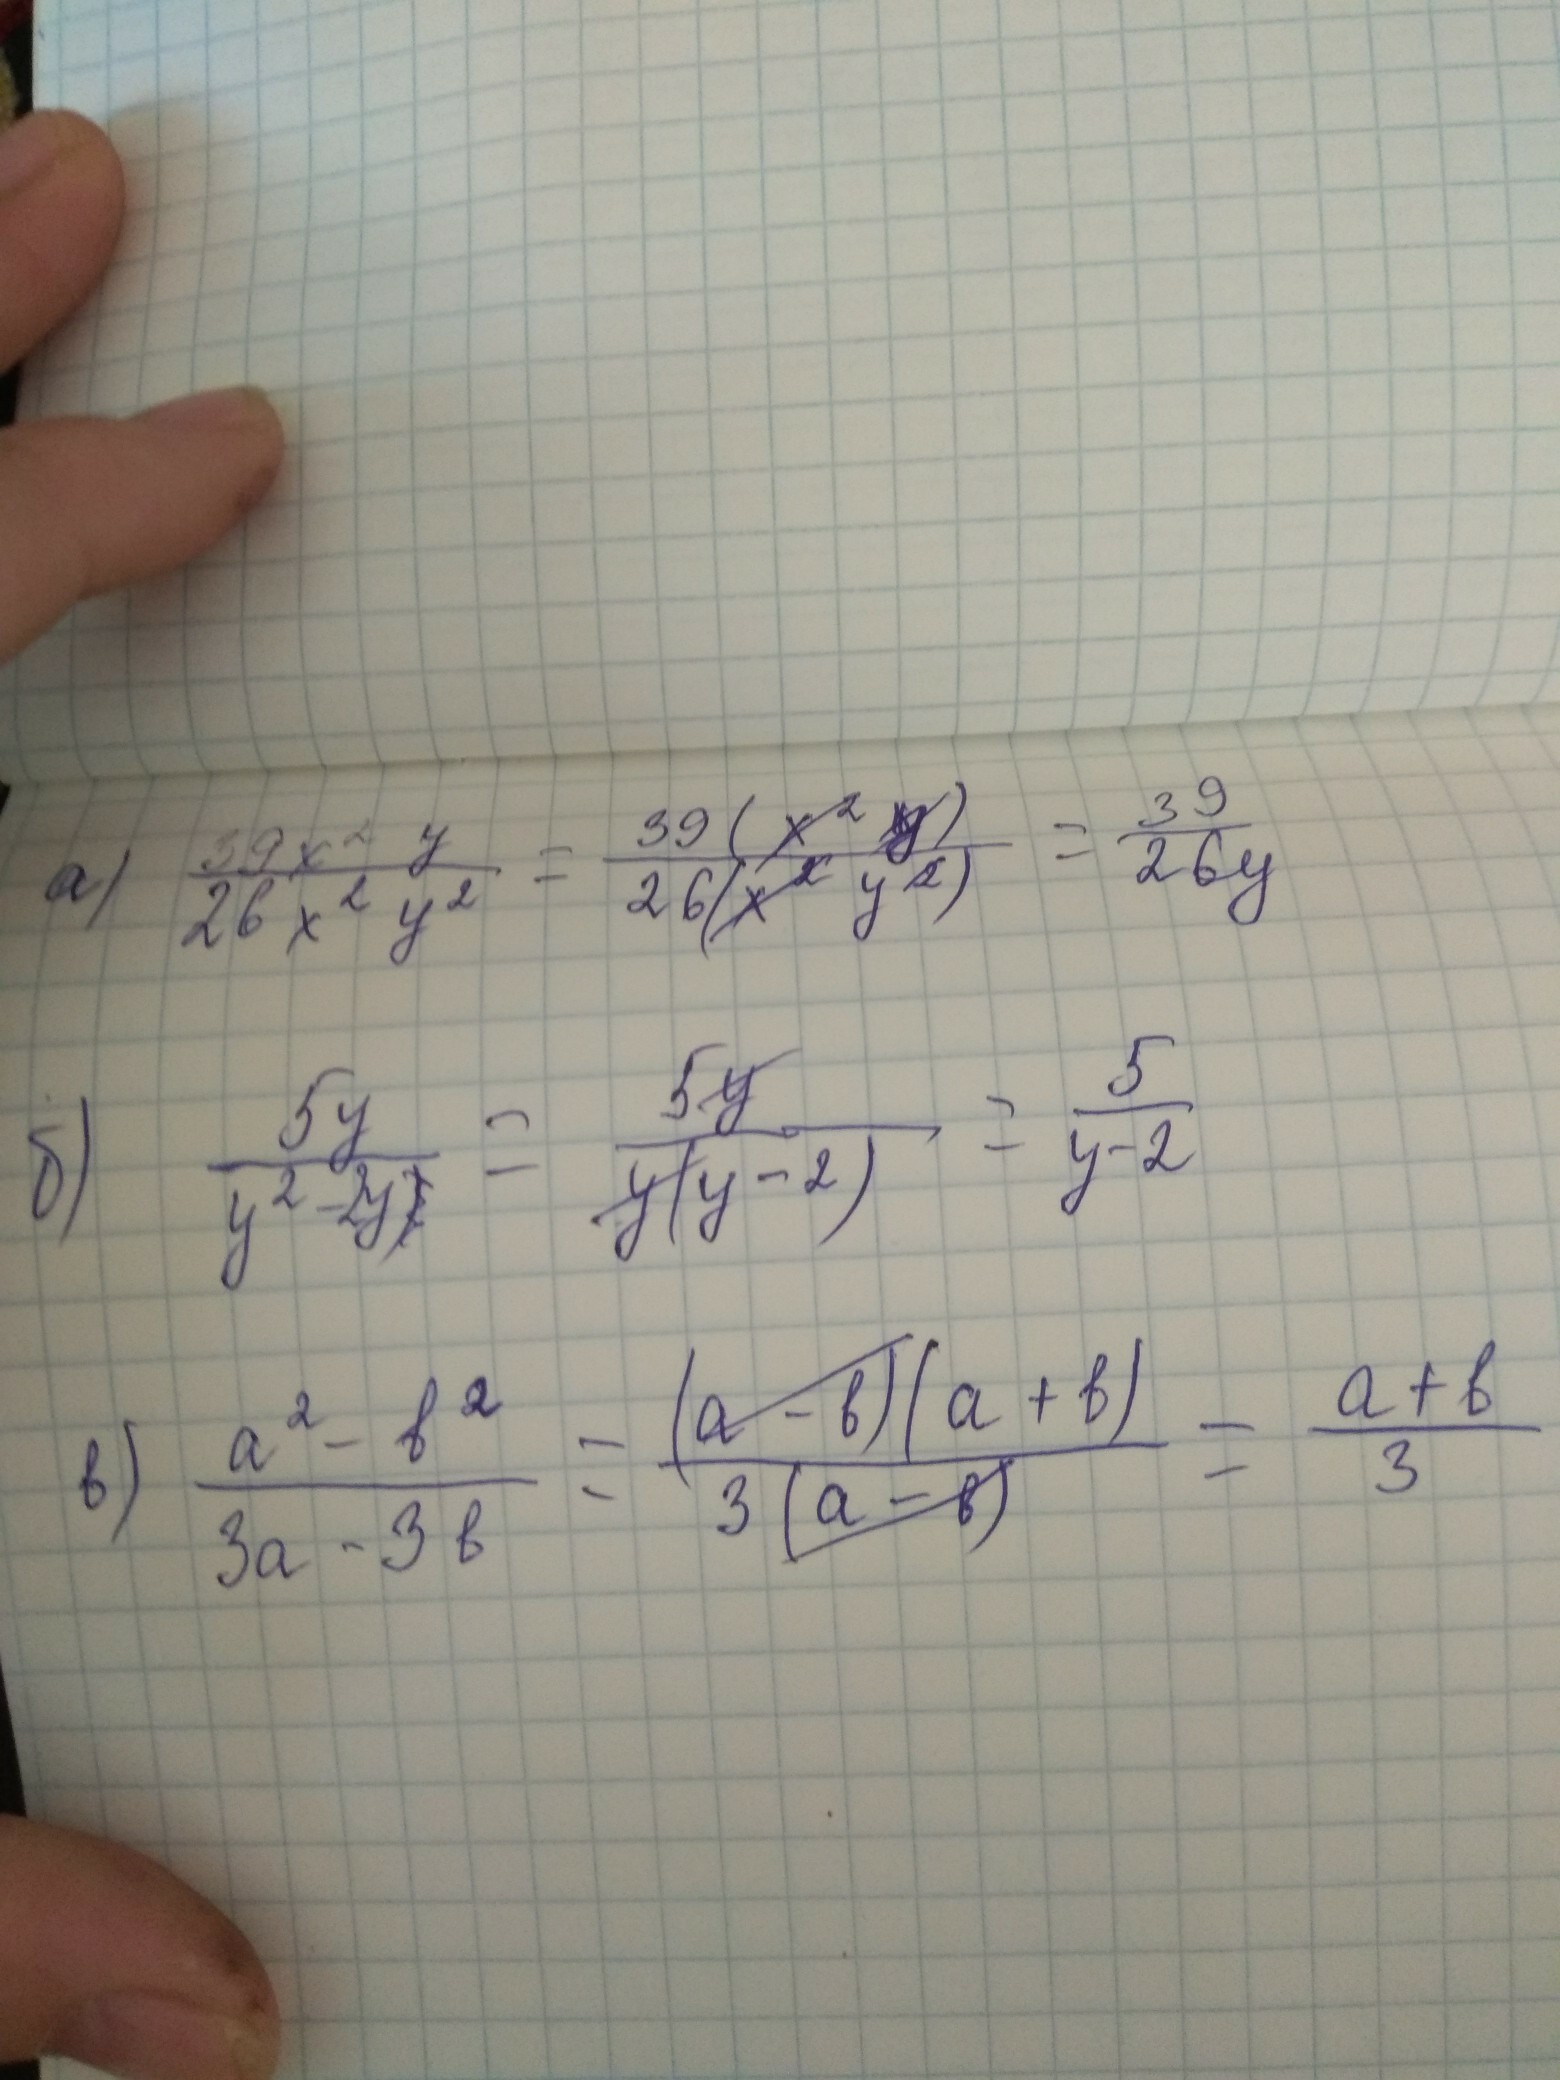 а) 39x² y / 26 x² y² = 39(x² y) / 26(x² y²) = 39 / 26y
б) 5y / y² - 2y = 5y / y(y - 2) = 5 / y - 2
в) a² - b² / 3a - 3b = (a - b)(a + b) / 3(a - b) = a + b / 3